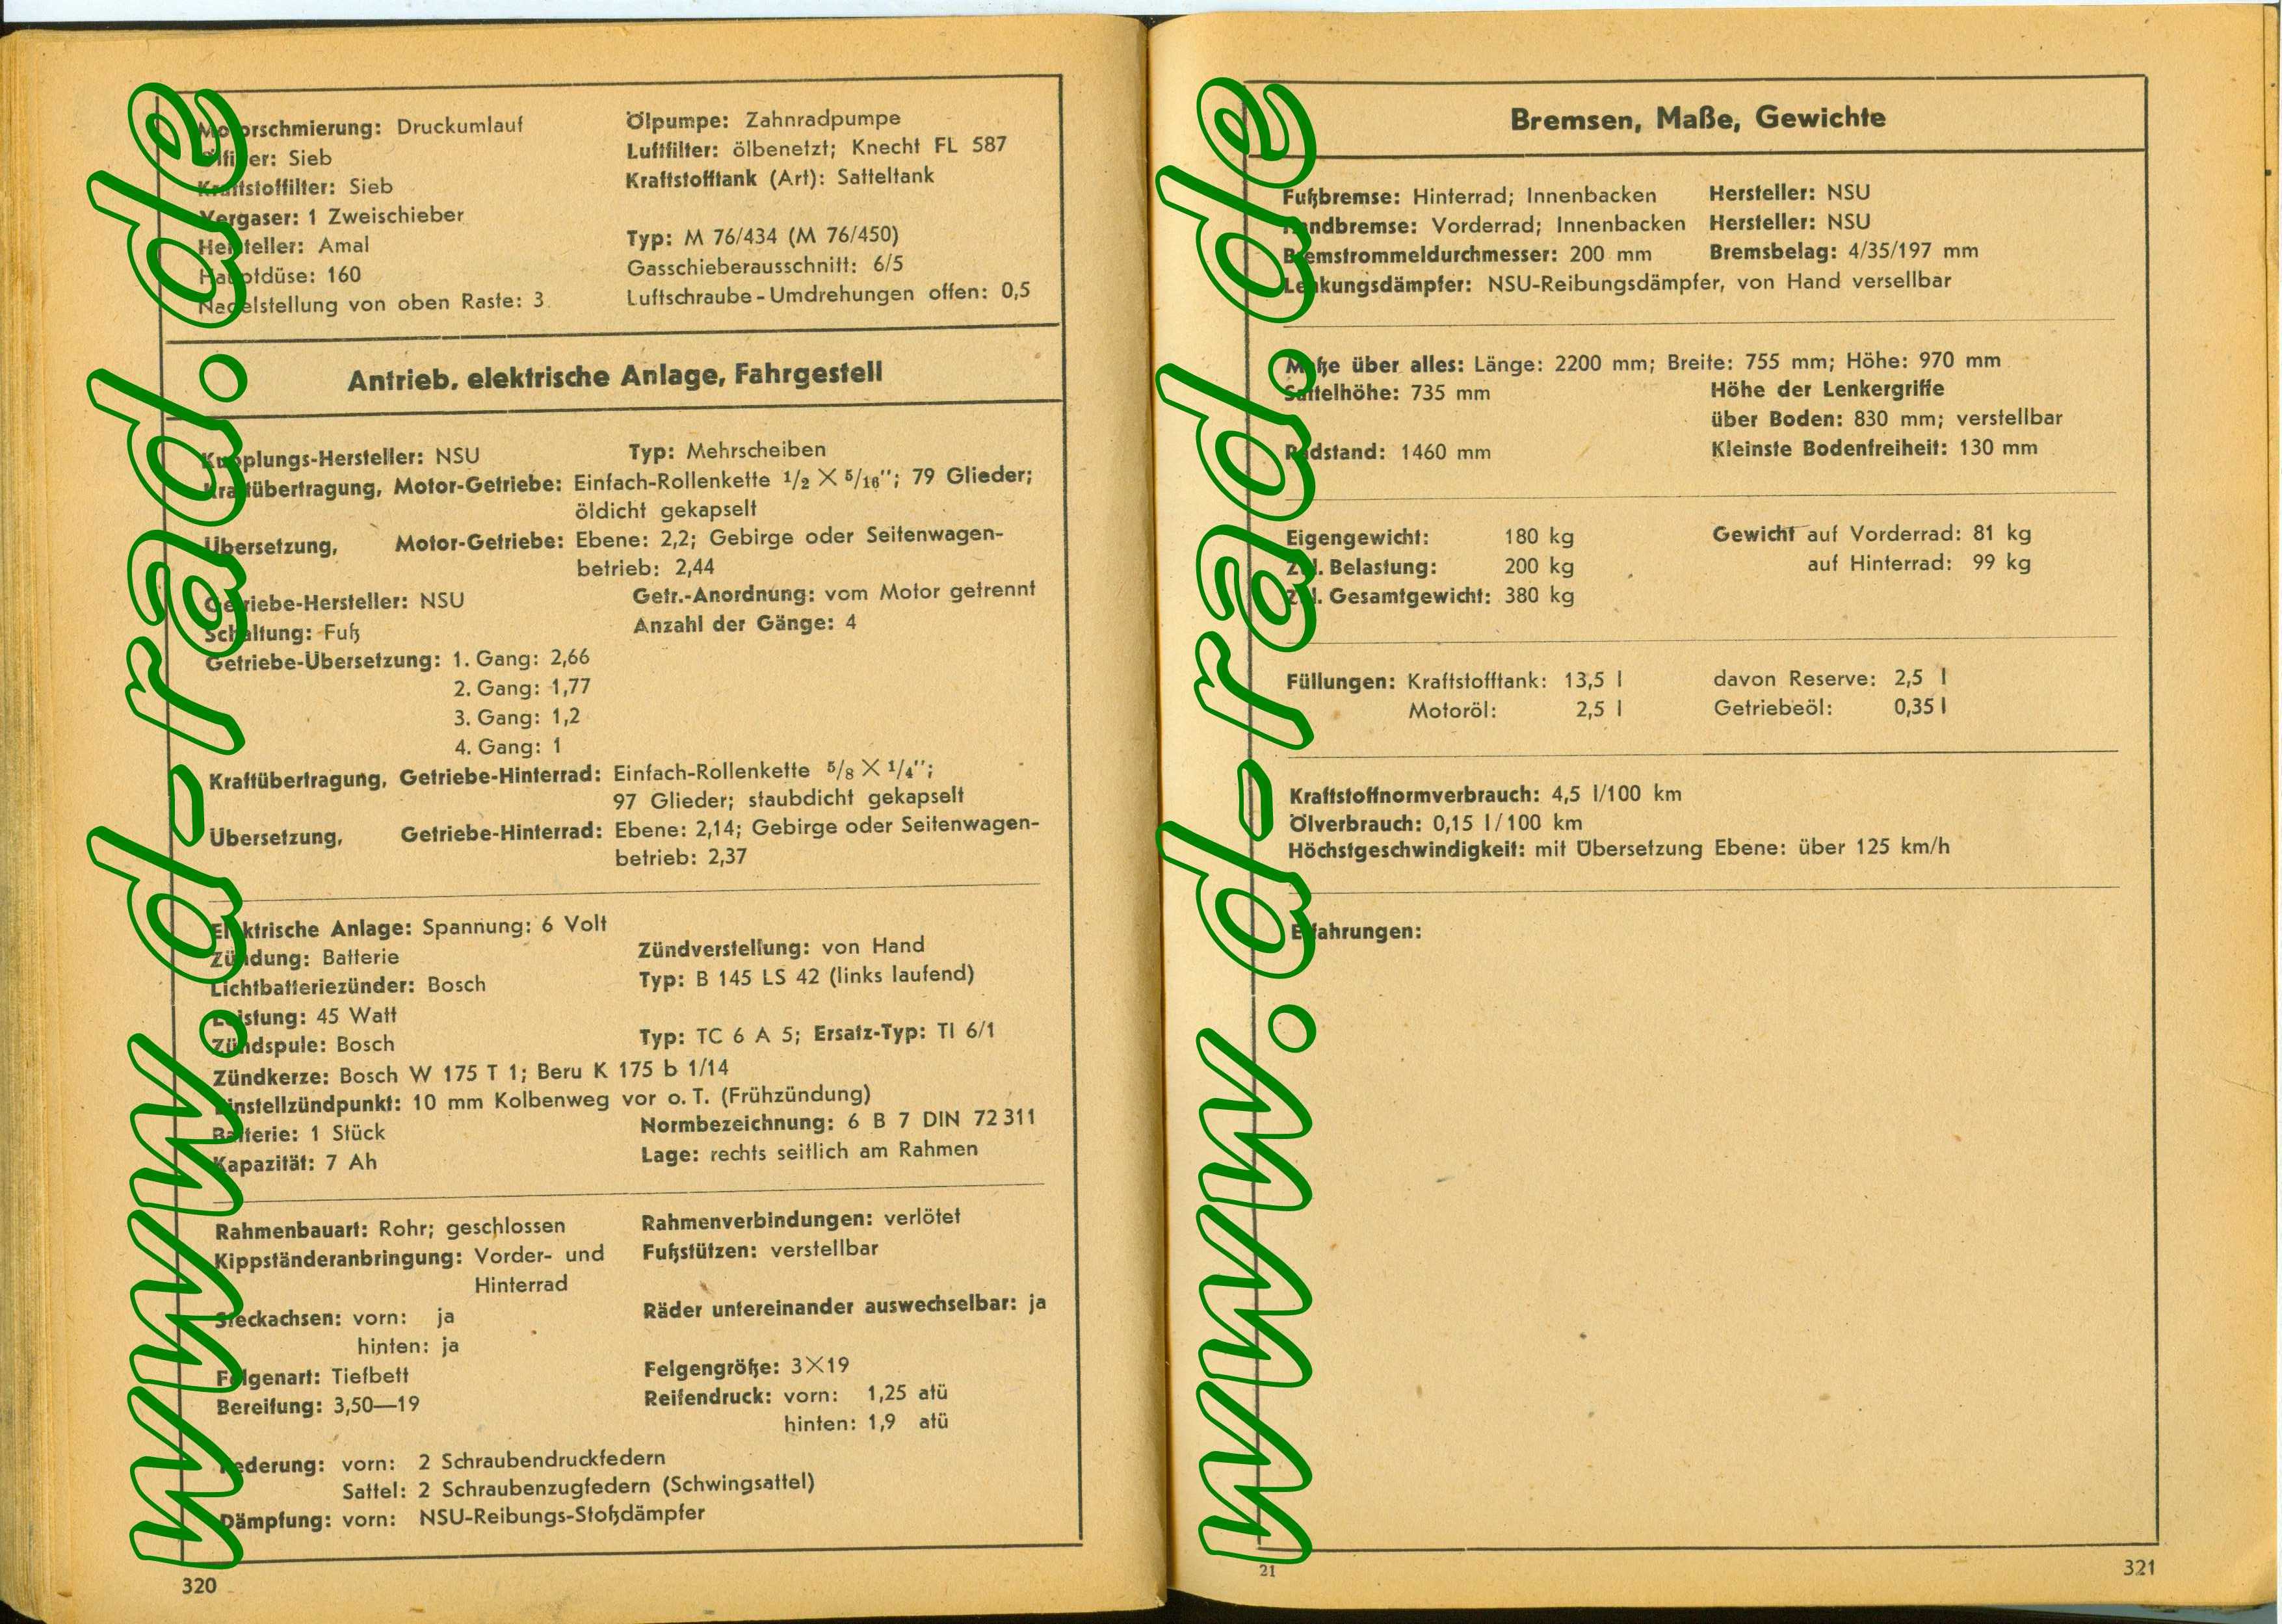 Motorschmierung: Druckumlauf
Ölfilter: Sieb
Kraftstoffilter: Sieb
Vergaser: 1 Zweischieber
Hersteller: Amal
Hauptdüse: 160
Nadelstellung von oben Raste: 3
Ölpumpe: Zahnradpumpe
Luftfilter: ölbenetzt; Knecht FL 587
Kraftstofftank (Art): Satteltank
Typ: M 76/434 (M 76/450)
Gasschieberausschnitt: 6/5
Luftschraube-Umdrehungen offen: 0,5
Antrieb, elektrische Anlage, Fahrgestell
Kupplungs-Hersteller: NSU Typ: Mehrscheiben
Kraftübertragung, Motor-Getriebe: Einfach-Rollenkette 1/2 × 5/16"; 79 Glieder;
öldicht gekapselt
Übersetzung, Motor-Getriebe: Ebene: 2,2; Gebirge oder Seitenwagen-
betrieb: 2,44
Getriebe-Hersteller: NSU Getr.-Anordnung: vom Motor getrennt
Schaltung: Fuß Anzahl der Gänge: 4
Getriebe-Übersetzung: 1. Gang: 2,66
2. Gang: 1,77
3. Gang: 1,2
4. Gang: 1
Kraftübertragung, Getriebe-Hinterrad: Einfach-Rollenkette 5/8 × 1/4";
97 Glieder; staubdicht gekapselt
Übersetzung, Getriebe-Hinterrad: Ebene: 2,14; Gebirge oder Seitenwagen-
betrieb: 2,37
Elektrische Anlage: Spannung: 6 Volt
Zündung: Batterie Zündverstellung: von Hand
Lichtbatteriezünder: Bosch Typ: B 145 LS 42 (links laufend)
Leistung: 45 Watt
Zündspule: Bosch Typ: TC 6 A 5; Ersatz-Typ: TI 6/1
Zündkerze: Bosch W 175 T 1; Beru K 175 b 1/14
Einstellzündpunkt: 10 mm Kolbenweg vor o. T. (Frühzündung)
Batterie: 1 Stück Normbezeichnung: 6 B 7 DIN 72 311
Kapazität: 7 Ah Lage: rechts seitlich am Rahmen
Rahmenbauart: Rohr; geschlossen Rahmenverbindungen: verlötet
Kippständeranbringung: Vorder- und Fußstützen: verstellbar
Hinterrad
Steckachsen: vorn: ja Räder untereinander auswechselbar: ja
hinten: ja
Felgenart: Tiefbett Felgengröße: 3×19
Bereifung: 3,50—19 Reifendruck: vorn: 1,25 atü
hinten: 1,9 atü
Federung: vorn: 2 Schraubendruckfedern
Sattel: 2 Schraubenzugfedern (Schwingsattel)
Dämpfung: vorn: NSU-Reibungs-Stoßdämpfer
320
www.d-rad.de
Bremsen, Maße, Gewichte
Fußbremse: Hinterrad; Innenbacken Hersteller: NSU
Handbremse: Vorderrad; Innenbacken Hersteller: NSU
Bremstrommeldurchmesser: 200 mm Bremsbelag: 4/35/197 mm
Lenkungsdämpfer: NSU-Reibungsdämpfer, von Hand versellbar
Maße über alles: Länge: 2200 mm; Breite: 755 mm; Höhe: 970 mm
Sattelhöhe: 735 mm Höhe der Lenkergriffe
über Boden: 830 mm; verstellbar
Radstand: 1460 mm Kleinste Bodenfreiheit: 130 mm
Eigengewicht: 180 kg Gewicht auf Vorderrad: 81 kg
Zul. Belastung: 200 kg auf Hinterrad: 99 kg
Zul. Gesamtgewicht: 380 kg
Füllungen: Kraftstofftank: 13,5 l davon Reserve: 2,5 l
Motoröl: 2,5 l Getriebeöl: 0,35 l
Kraftstoffnormverbrauch: 4,5 l/100 km
Ölverbrauch: 0,15 l/100 km
Höchstgeschwindigkeit: mit Übersetzung Ebene: über 125 km/h
Erfahrungen:
21
321
www.d-rad.de